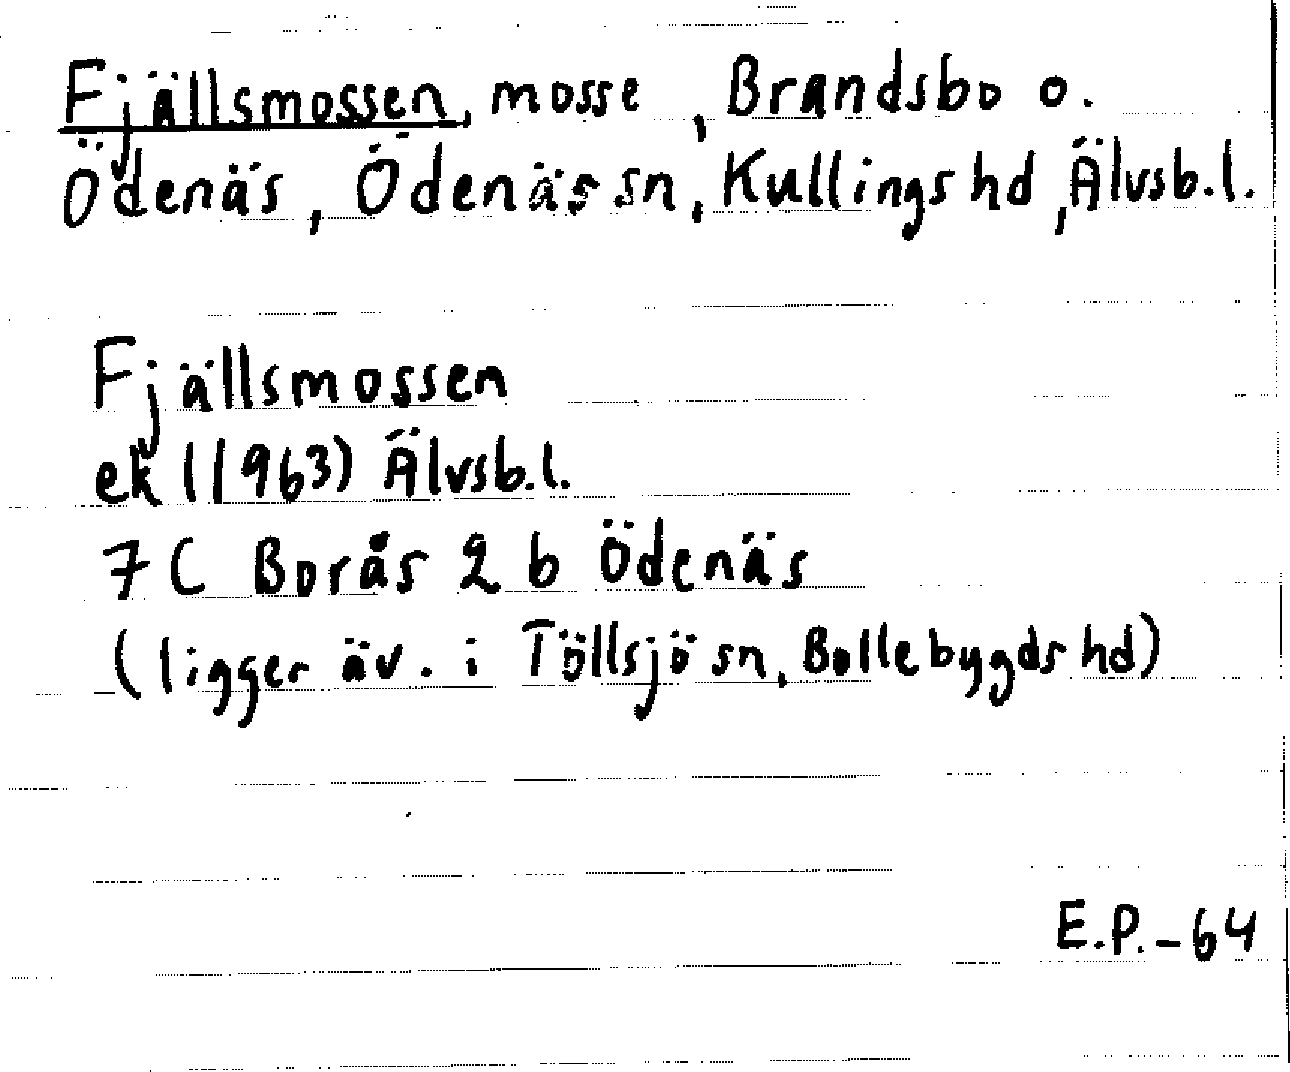 Fjällsmossen, mosse, Brandsbo o.
Ödenäs, Ödenäs sn, Kullings hd, Älvsb.l.
Fjällsmossen
ek (1963) Älvsb.l.
7 C Borås 2 b Ödenäs
(ligger äv. i Töllsjö sn, Bollebygds hd)
E.P.-64